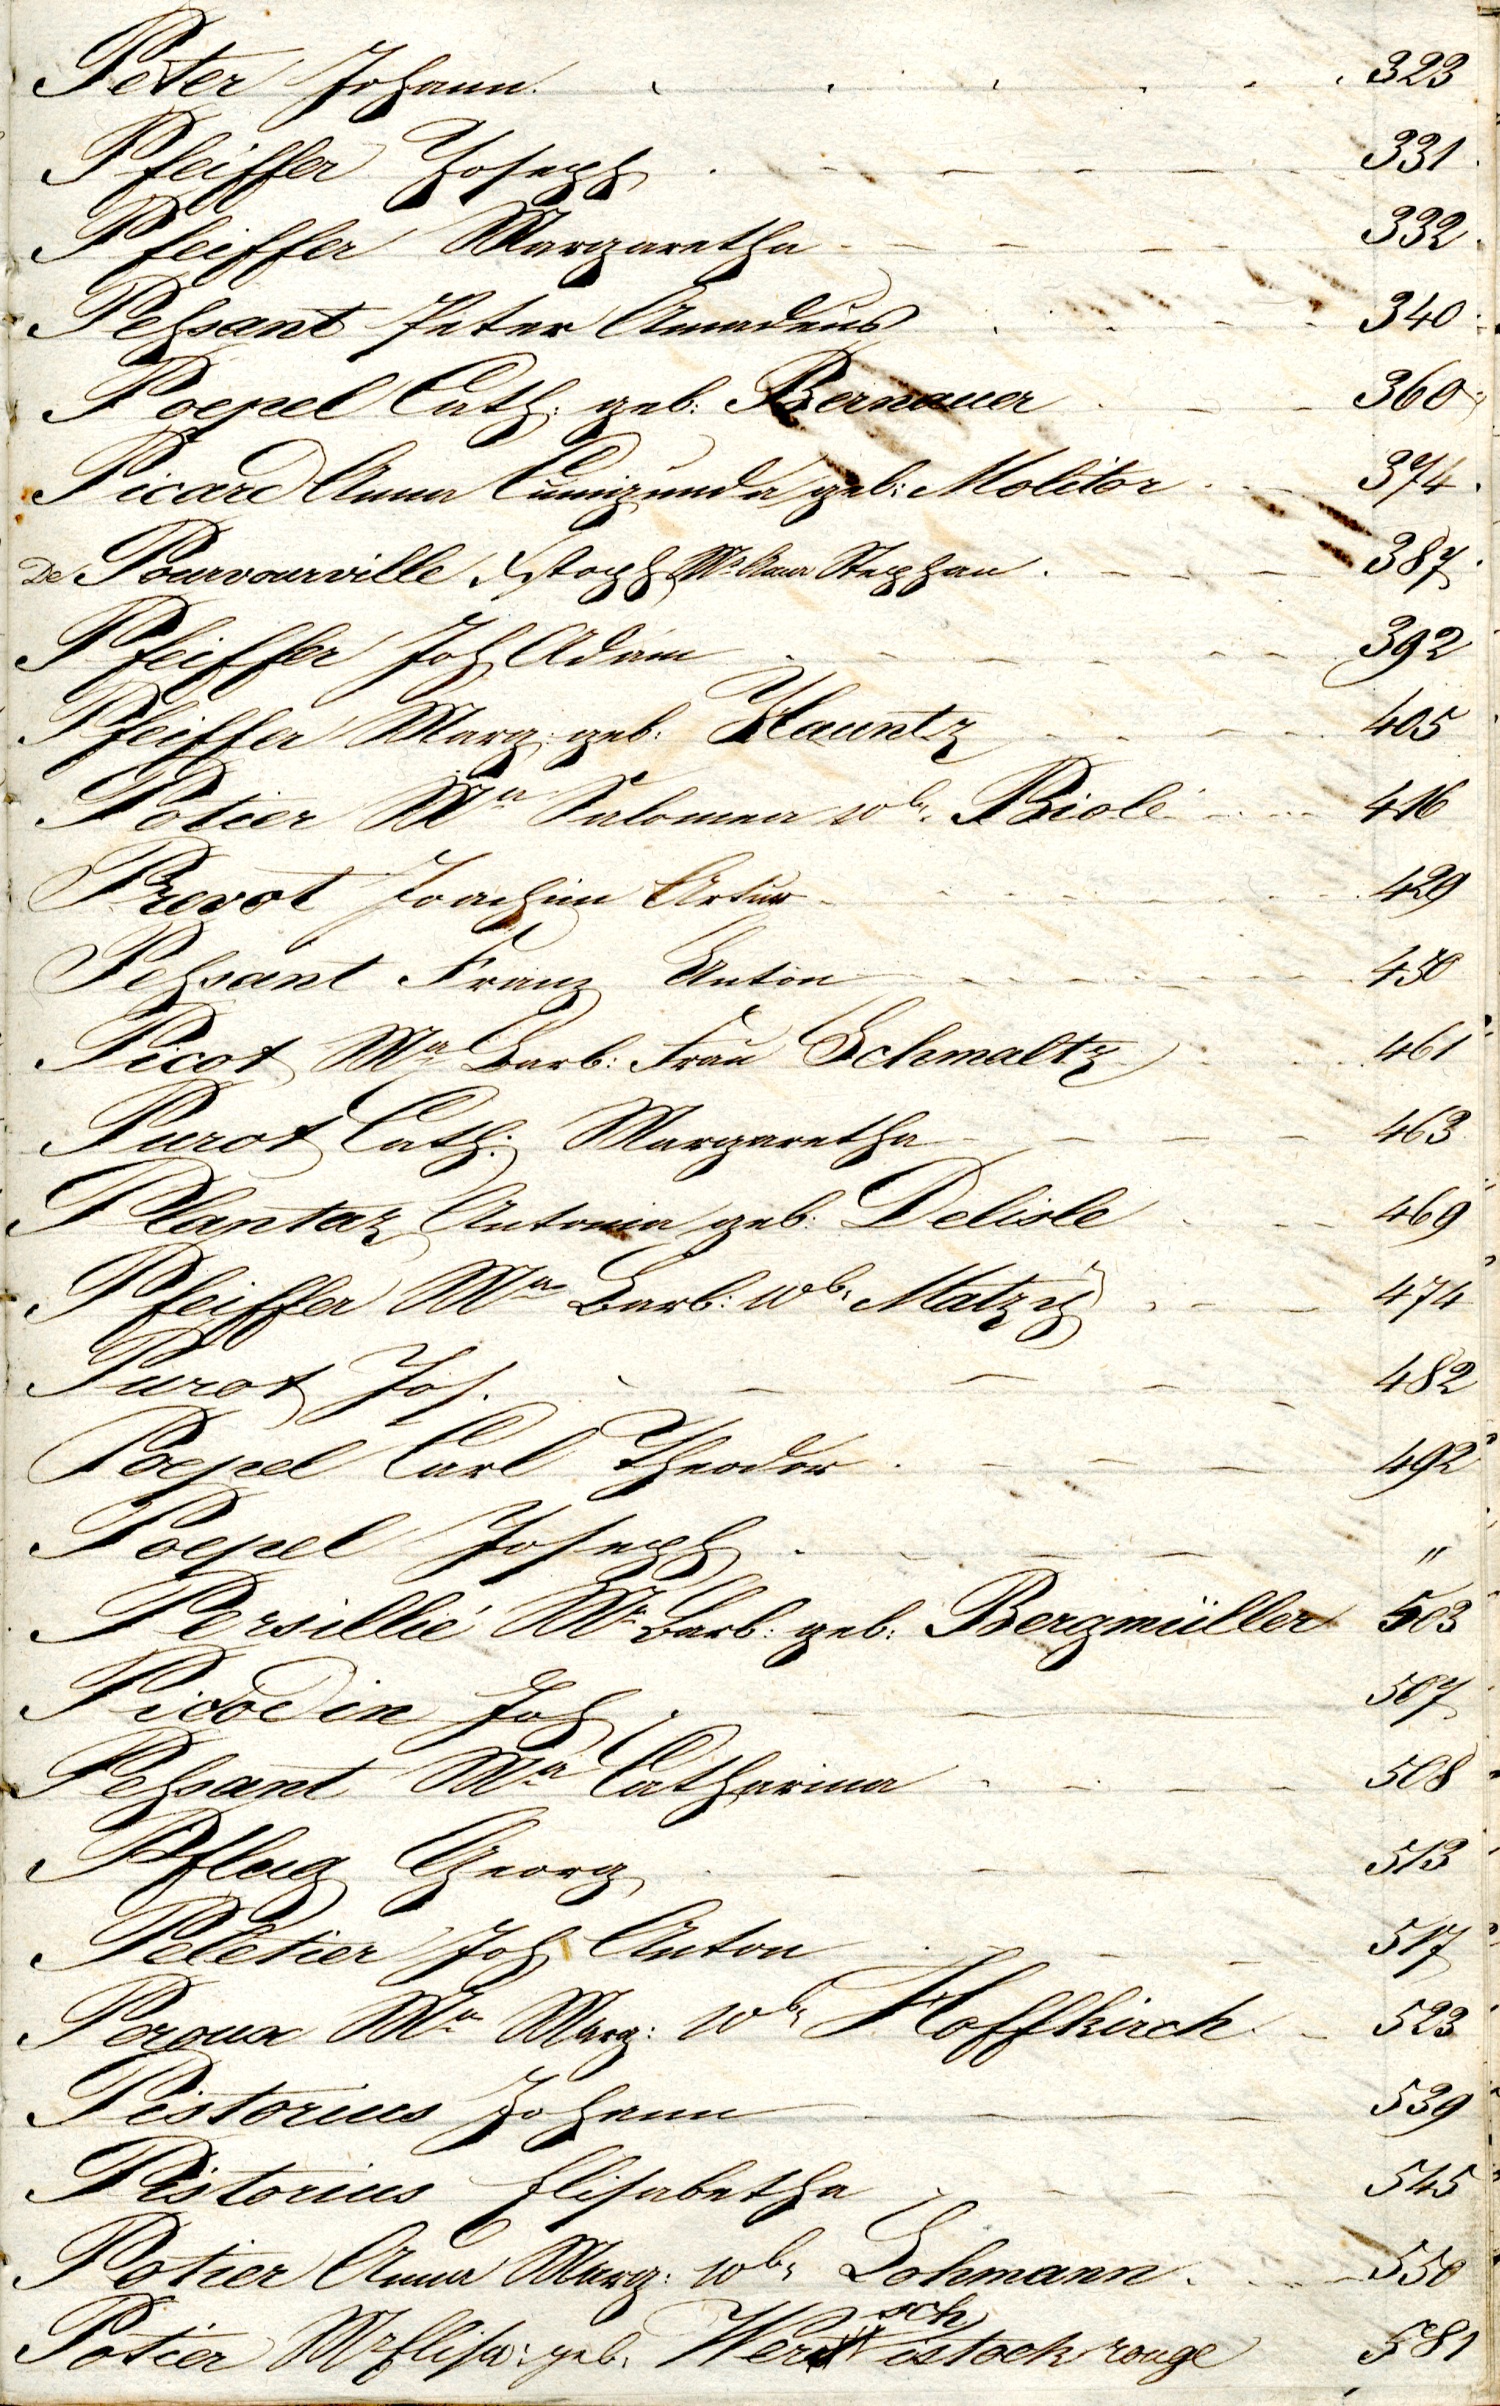 Peter Johann. 323
Pfeiffer Joseph 331
Pfeiffer Margaretha 332
Pehsant Peter Amadeus 340
Poepel Cath: geb: Bernauer 360
Picard Anna Cunigunda geb: Molitor 374
De Pourvourville Mr Anna Stephan 387
Pfeiffer Joh Adam 392
Pfeiffer Marg: geb: Hauntz 405
Potier Ma Salomea wb. Biolé 416
Prevot Joachim Artur 429
Pehsant Franz Anton 450
Picot Ma Barb: Frau Schmaltz 461
Purot Cath: Margaretha 463
Plantaz Antonia geb: Delisle 469
Pfeiffer Ma Barb: wb. Matzÿ 474
Purot Jos. 482
Poepel Carl Theodor 492
Poepel Joseph "
Persillié Ma Barb: geb: Bergmüller 503
Picodin Joh 507
Pehsant Ma Catharina 508
Pflug Georg 513
Peletier Joh Anton 517
Peroux Ma Marg: wb. Hoffkirch 523
Pistorius Johann 539
Pistorius Elisabetha 545
Potier Anna Marg: wb. Lohmann 550
Potier Ma Elisa: geb: Wer sch istock rouge 581